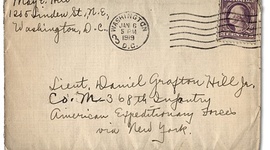 1215 Linden St, N.E.,
Washington, D.C.
WASHINGTON
JAN 6
5 PM
1919
D.C.
Lieut. Daniel Grafton Hill Jr.
Co. M-368th Infantry
American Expeditionary Forces
via New York.